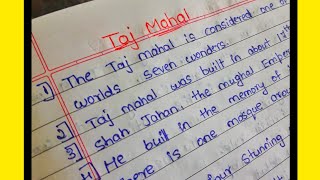 Taj Mahal
1] The Taj mahal is considered one of
worlds seven wonders.
2] Taj mahal was built in about 17th
3] Shah Jahan, the mughal Emper
4] He built in the memory of
there is one mosque aroun
four stunning